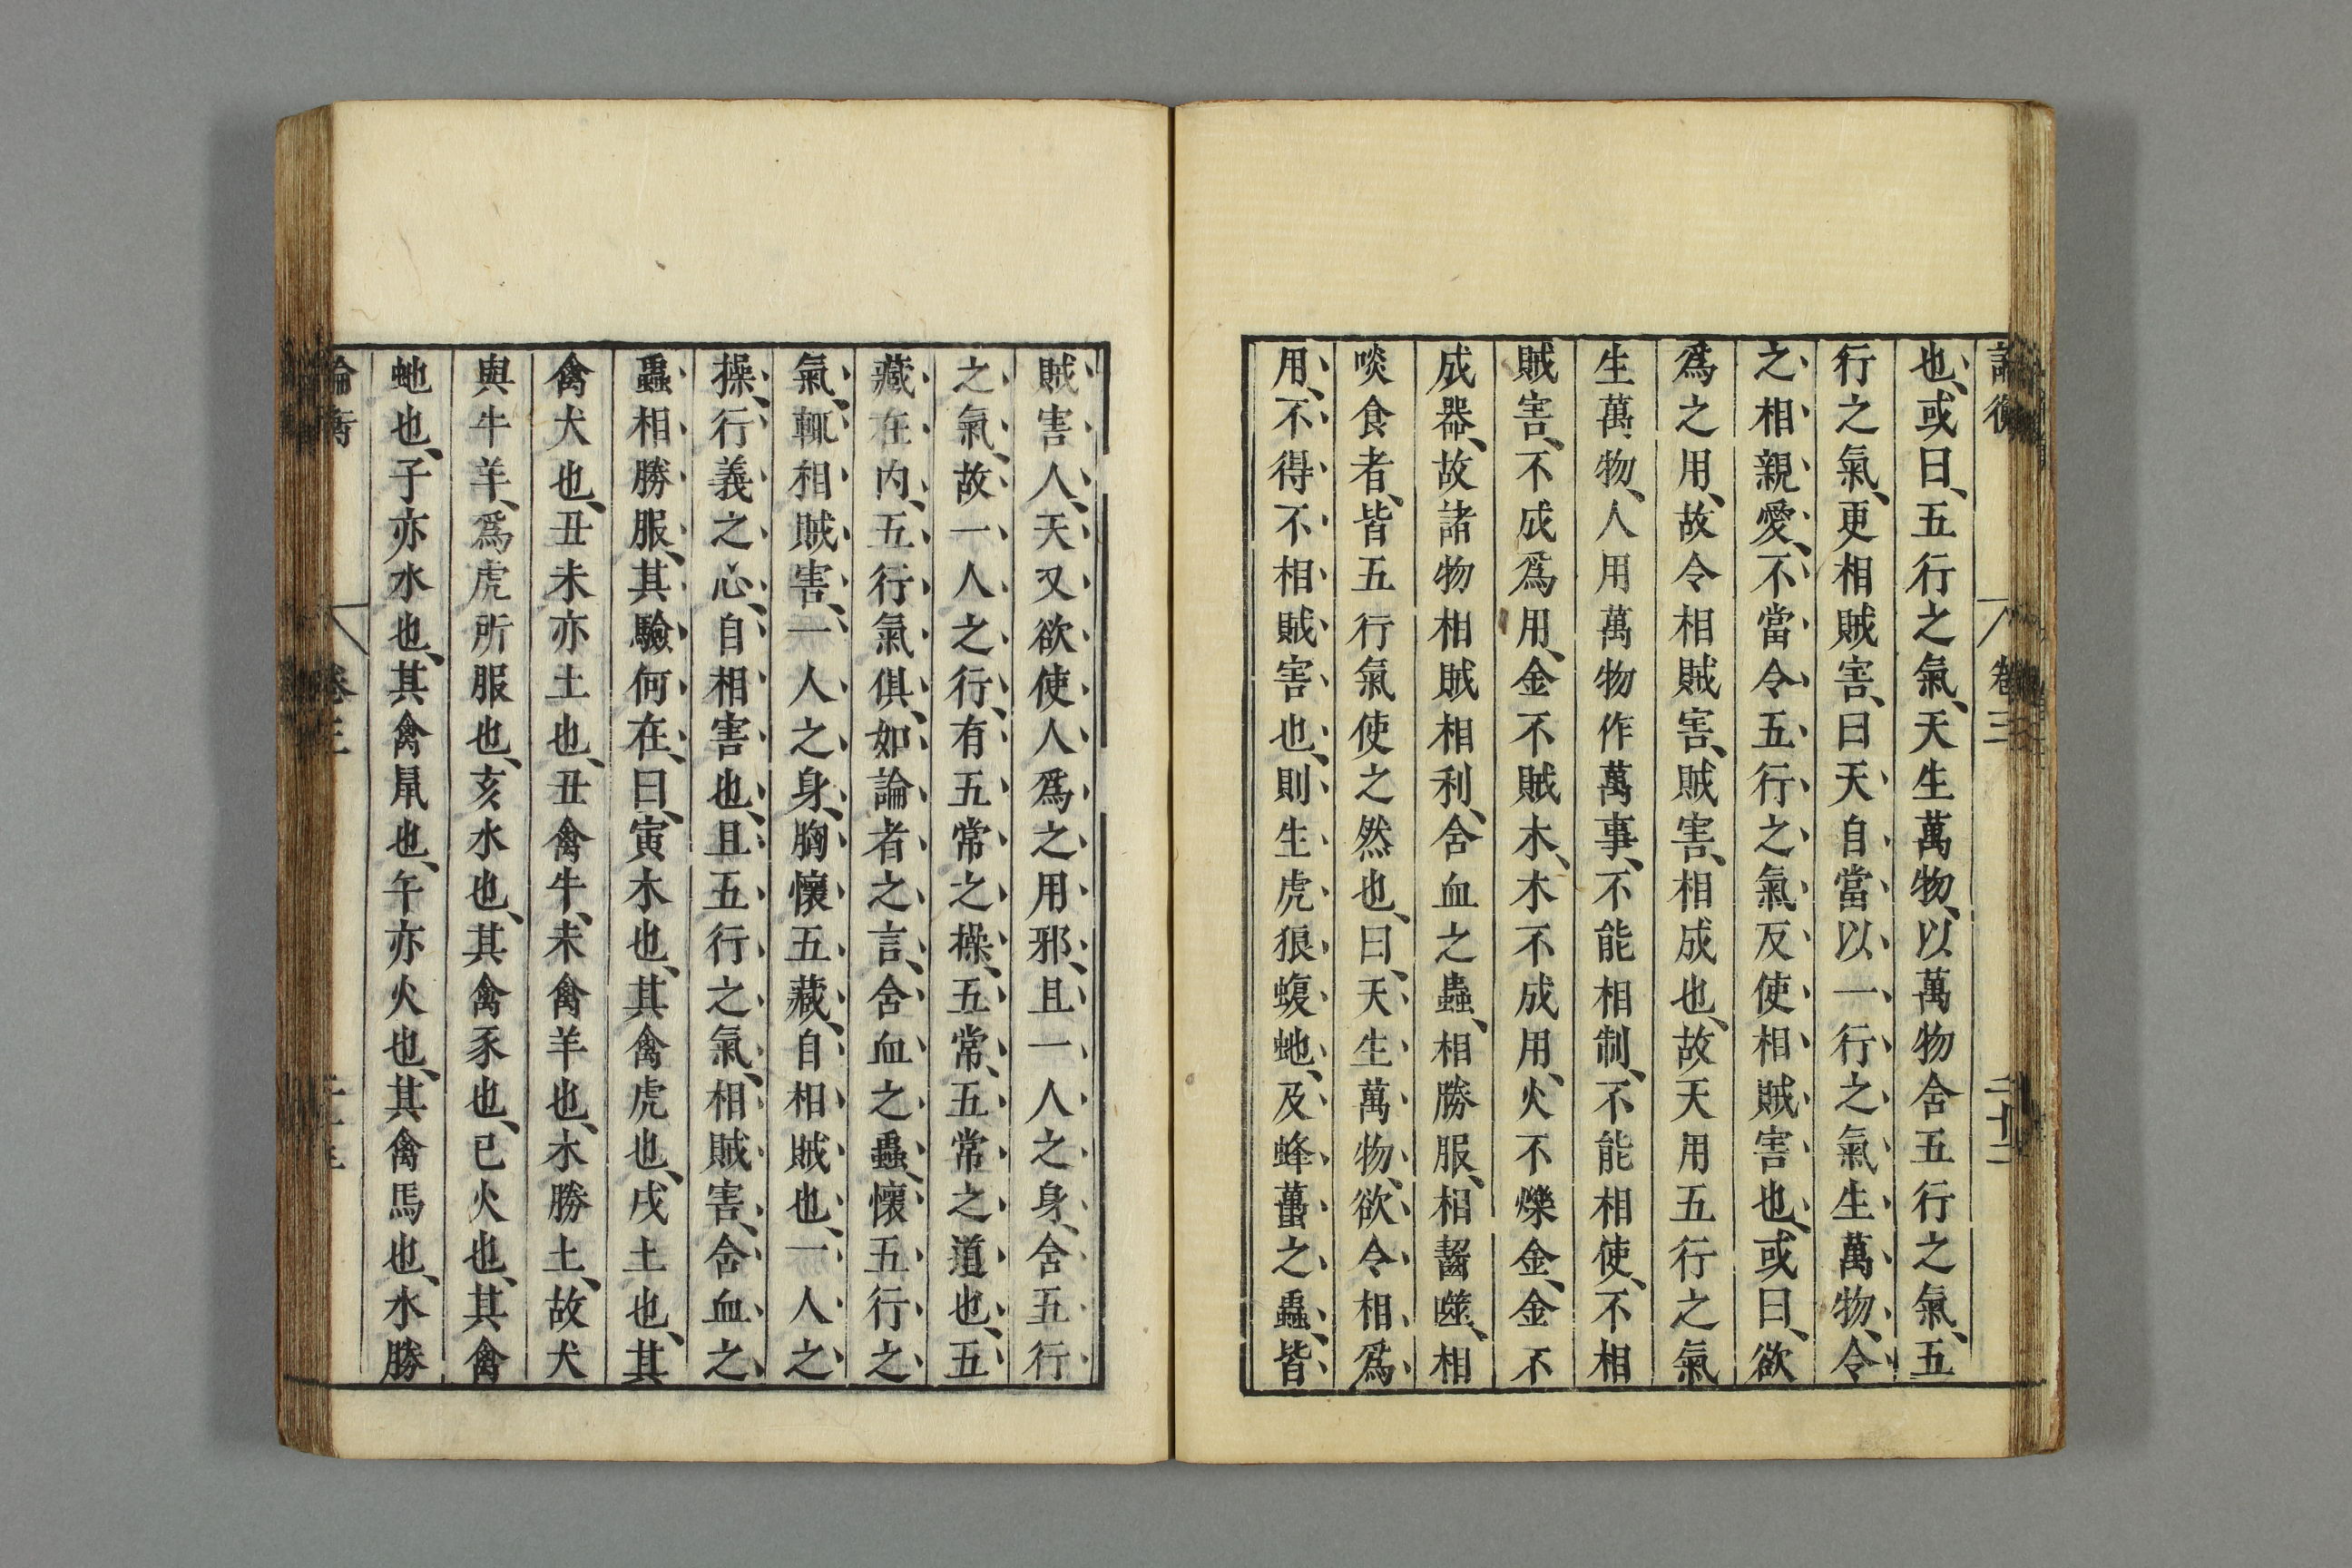 論衡 卷三 二十二
也、或曰、五行之氣、天生萬物、以萬物含五行之氣、五
行之氣、更相賊害、曰天自當以一行之氣生萬物、令
之相親愛、不當令五行之氣反使相賊害也、或曰、欲
爲之用、故令相賊害、賊害、相成也、故天用五行之氣
生萬物、人用萬物作萬事、不能相制、不能相使、不相
賊害、不成爲用、金不賊木、木不成用、火不爍金、金不
成器、故諸物相賊相利、含血之蟲、相勝服、相齧噬、相
啖食者、皆五行氣使之然也、曰、天生萬物、欲令相爲
用、不得不相賊害也、則生虎狼蝮虵、及蜂蠆之蟲、皆
賊害人、天又欲使人爲之用邪、且一人之身、含五行
之氣、故一人之行、有五常之操、五常、五常之道也、五
藏在内、五行氣俱、如論者之言、含血之蟲、懷五行之
氣、輒相賊害、一人之身、胸懷五藏、自相賊也、一人之
操、行義之心、自相害也、且五行之氣、相賊害、含血之
蟲相勝服、其驗何在、曰、寅木也、其禽虎也、戌土也、其
禽犬也、丑未亦土也、丑禽牛、未禽羊也、木勝土、故犬
與牛羊、爲虎所服也、亥水也、其禽豕也、巳火也、其禽
虵也、子亦水也、其禽鼠也、午亦火也、其禽馬也、水勝
論衡 卷三